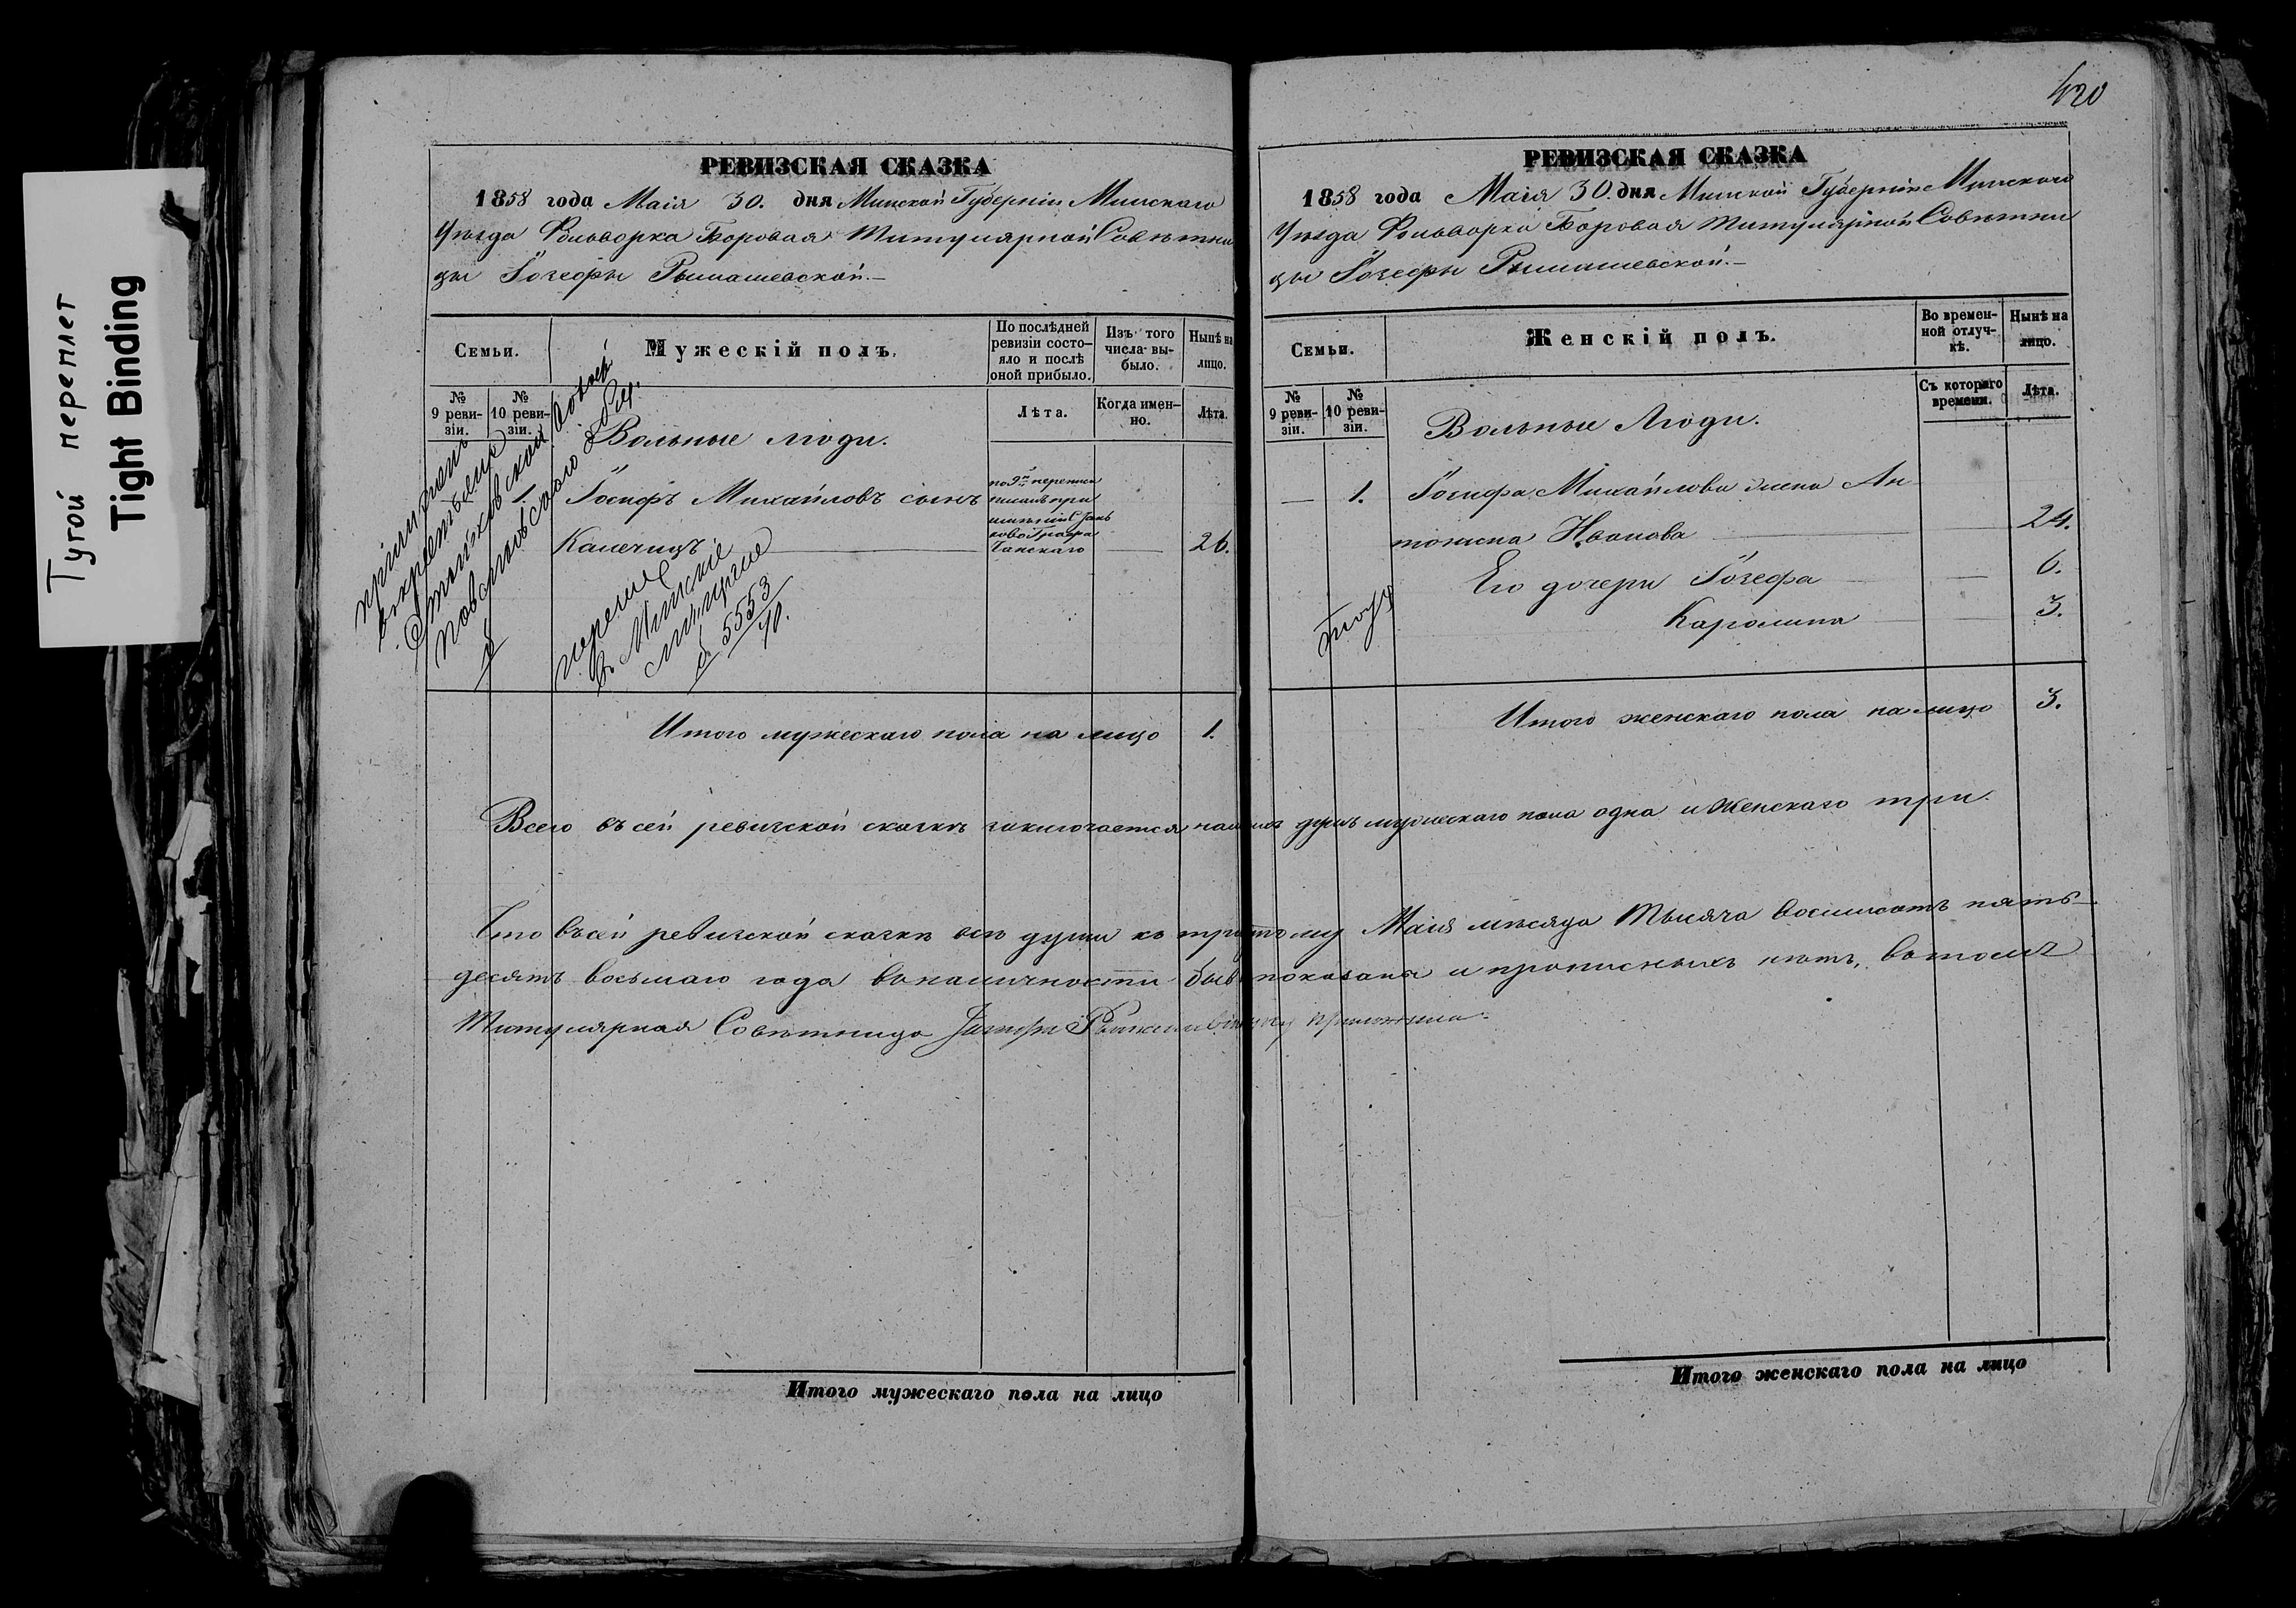 Тугой переплет
Tight Binding
420
РЕВИЗСКАЯ СКАЗКА
1858 года Маія 30. дня Минской Губерніи Минскаго
Уѣзда Фольворка Боровая Титулярной Совѣтни
цы Іозефы Рымашевской.—
Семьи.
Мужескій полъ.
По послѣдней
ревизіи состо-
яло и послѣ
оной прибыло.
Изъ того
числа вы-
было.
Нынѣ на
лицо.
№
9 реви-
зіи.
№
10 реви-
зіи.
Лѣта.
Когда имен-
но.
Лѣта.
Вольные люди.
1. Іосифъ Михайловъ сынъ
Калечицъ 26.
по 9й переписи
писанъ при
имѣніи Стань
ково Графа
Чапскаго
перечис
въ Минскіе
5553
10.
Итого мужескаго пола на лицо 1.
РЕВИЗСКАЯ СКАЗКА
1858 года Маія 30. дня Минской Губерніи Минскаго
Уѣзда Фольворка Боровая Титулярной Совѣтни
цы Іозефы Рымашевской.—
Семьи.
Женскій полъ.
Во времен-
ной отлуч-
кѣ.
Нынѣ на
лицо.
№
9 реви-
зіи.
№
10 реви-
зіи.
Съ котораго
времени.
Лѣта.
Вольные Люди.
— 1. Іосифа Михайлова жена Ан
тонина Иванова — 24.
Его дочери Іозефа — 6.
Каролина — 3.
Итого женскаго пола на лицо 3.
Всего въ сей ревизской сказкѣ заключается налицо душъ мужескаго пола одна и Женскаго три.
Что въ сей ревизской сказкѣ всѣ души къ Маія мѣсяца Тысяча восемьсотъ пять-
десятъ восьмаго года въ наличности показаны и прописныхъ нѣтъ, въ томъ
Титулярная Совѣтница
Итого мужескаго пола на лицо
Итого женскаго пола на лицо